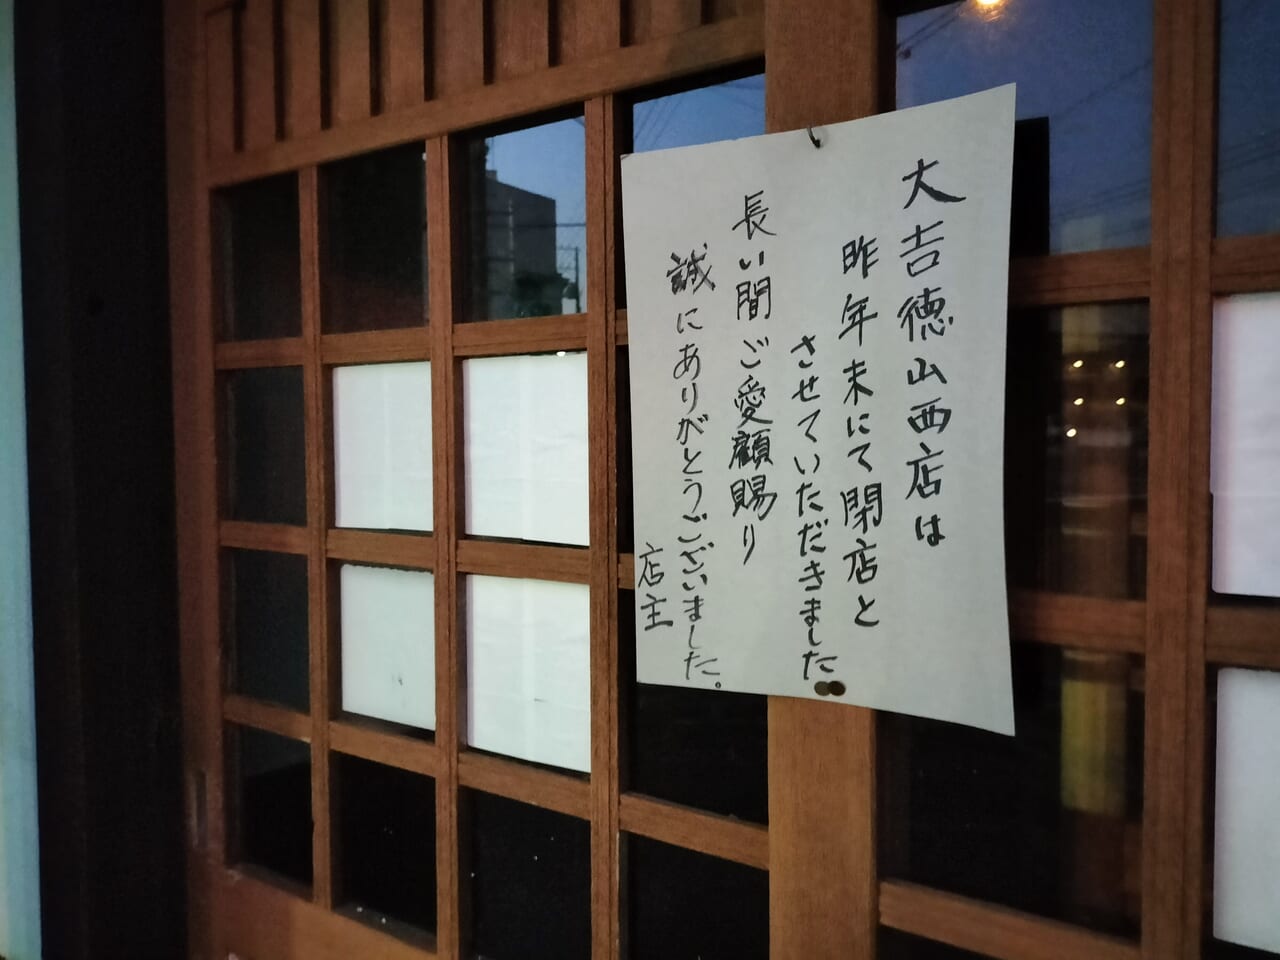 大吉徳山西店は
昨年末にて閉店と
させていただきました
長い間ご愛顧賜り
誠にありがとうございました。
店主